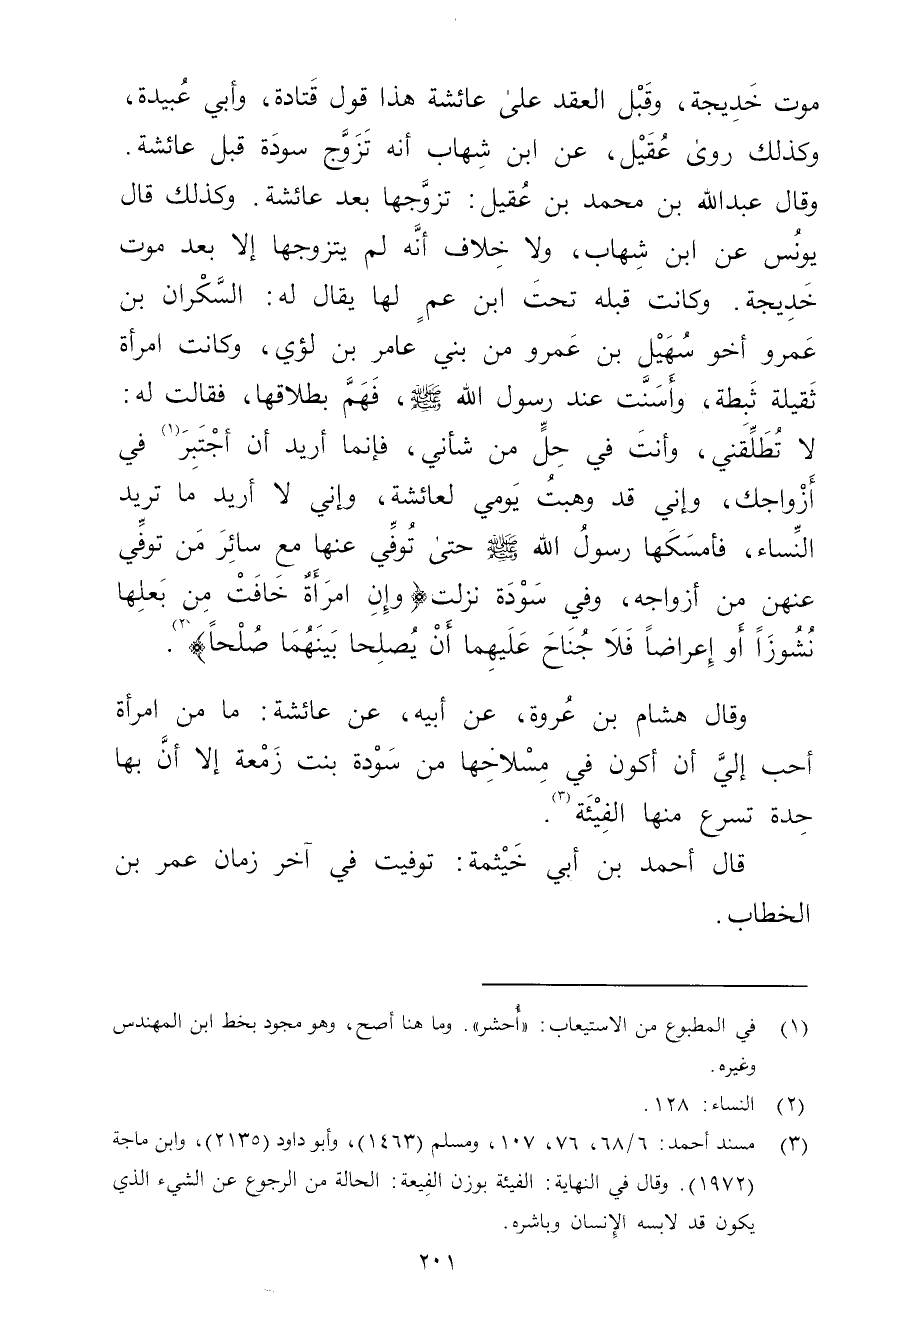 موت خَديجة، وقَبْل العقد علىٰ عائشة هذا قول قَتادة، وأبي عُبيدة،
وكذلك روىٰ عُقَيْل، عن ابن شِهاب أنه تَزَوَّج سودَة قبل عائشة.
وقال عبدالله بن محمد بن عُقيل: تزوَّجها بعد عائشة. وكذلك قال
يونُس عن ابن شِهاب، ولا خِلاف أنَّه لم يتزوجها إلا بعد موت
خَدِيجة. وكانت قبله تحتَ ابن عمٍ لها يقال له: السَّكْران بن
عَمرو أخو سُهَيْل بن عَمرو من بني عامر بن لؤي، وكانت امرأة
ثَقيلة ثَبِطة، وأَسَنَّت عند رسول الله ﷺ، فَهَمَّ بطلاقها، فقالت له:
لا تُطَلِّقني، وأنتَ في حِلٍّ من شأني، فإنما أريد أن أجْتَبِرَ(١) في
أَزْواجك، وإني قد وهبتُ يَومي لعائشة، وإني لا أريد ما تريد
النِّساء، فأمسَكَها رسولُ الله ﷺ حتىٰ تُوفِّي عنها مع سائِرَ مَن توفِّي
عنهن من أزواجه، وفي سَوْدَة نزلت ﴿وإِنِ امرَأَةٌ خَافَتْ مِن بَعلِها
نُشُوزَاً أو إِعراضاً فَلَا جُنَاحَ عَلَيهِما أَنْ يُصلِحا بَينَهُمَا صُلْحاً﴾(٢).
وقال هشام بن عُروة، عن أبيه، عن عائشة: ما من امرأة
أحب إليَّ أن أكون في مِسْلاخِها من سَوْدة بنت زَمْعة إلا أنَّ بها
حِدة تسرع منها الفِيْئَة(٣).
قال أحمد بن أبي خَيْثمة: توفيت في آخر زمان عمر بن
الخطاب.
(١) في المطبوع من الاستيعاب: «أُحشر». وما هنا أصح، وهو مجود بخط ابن المهندس
وغيره.
(٢) النساء: ١٢٨.
(٣) مسند أحمد: ٦/ ٦٨، ٧٦، ١٠٧، ومسلم (١٤٦٣)، وأبو داود (٢١٣٥)، وابن ماجة
(١٩٧٢). وقال في النهاية: الفيئة بوزن الفِيعة: الحالة من الرجوع عن الشيء الذي
يكون قد لابسه الإِنسان وباشره.
٢٠١